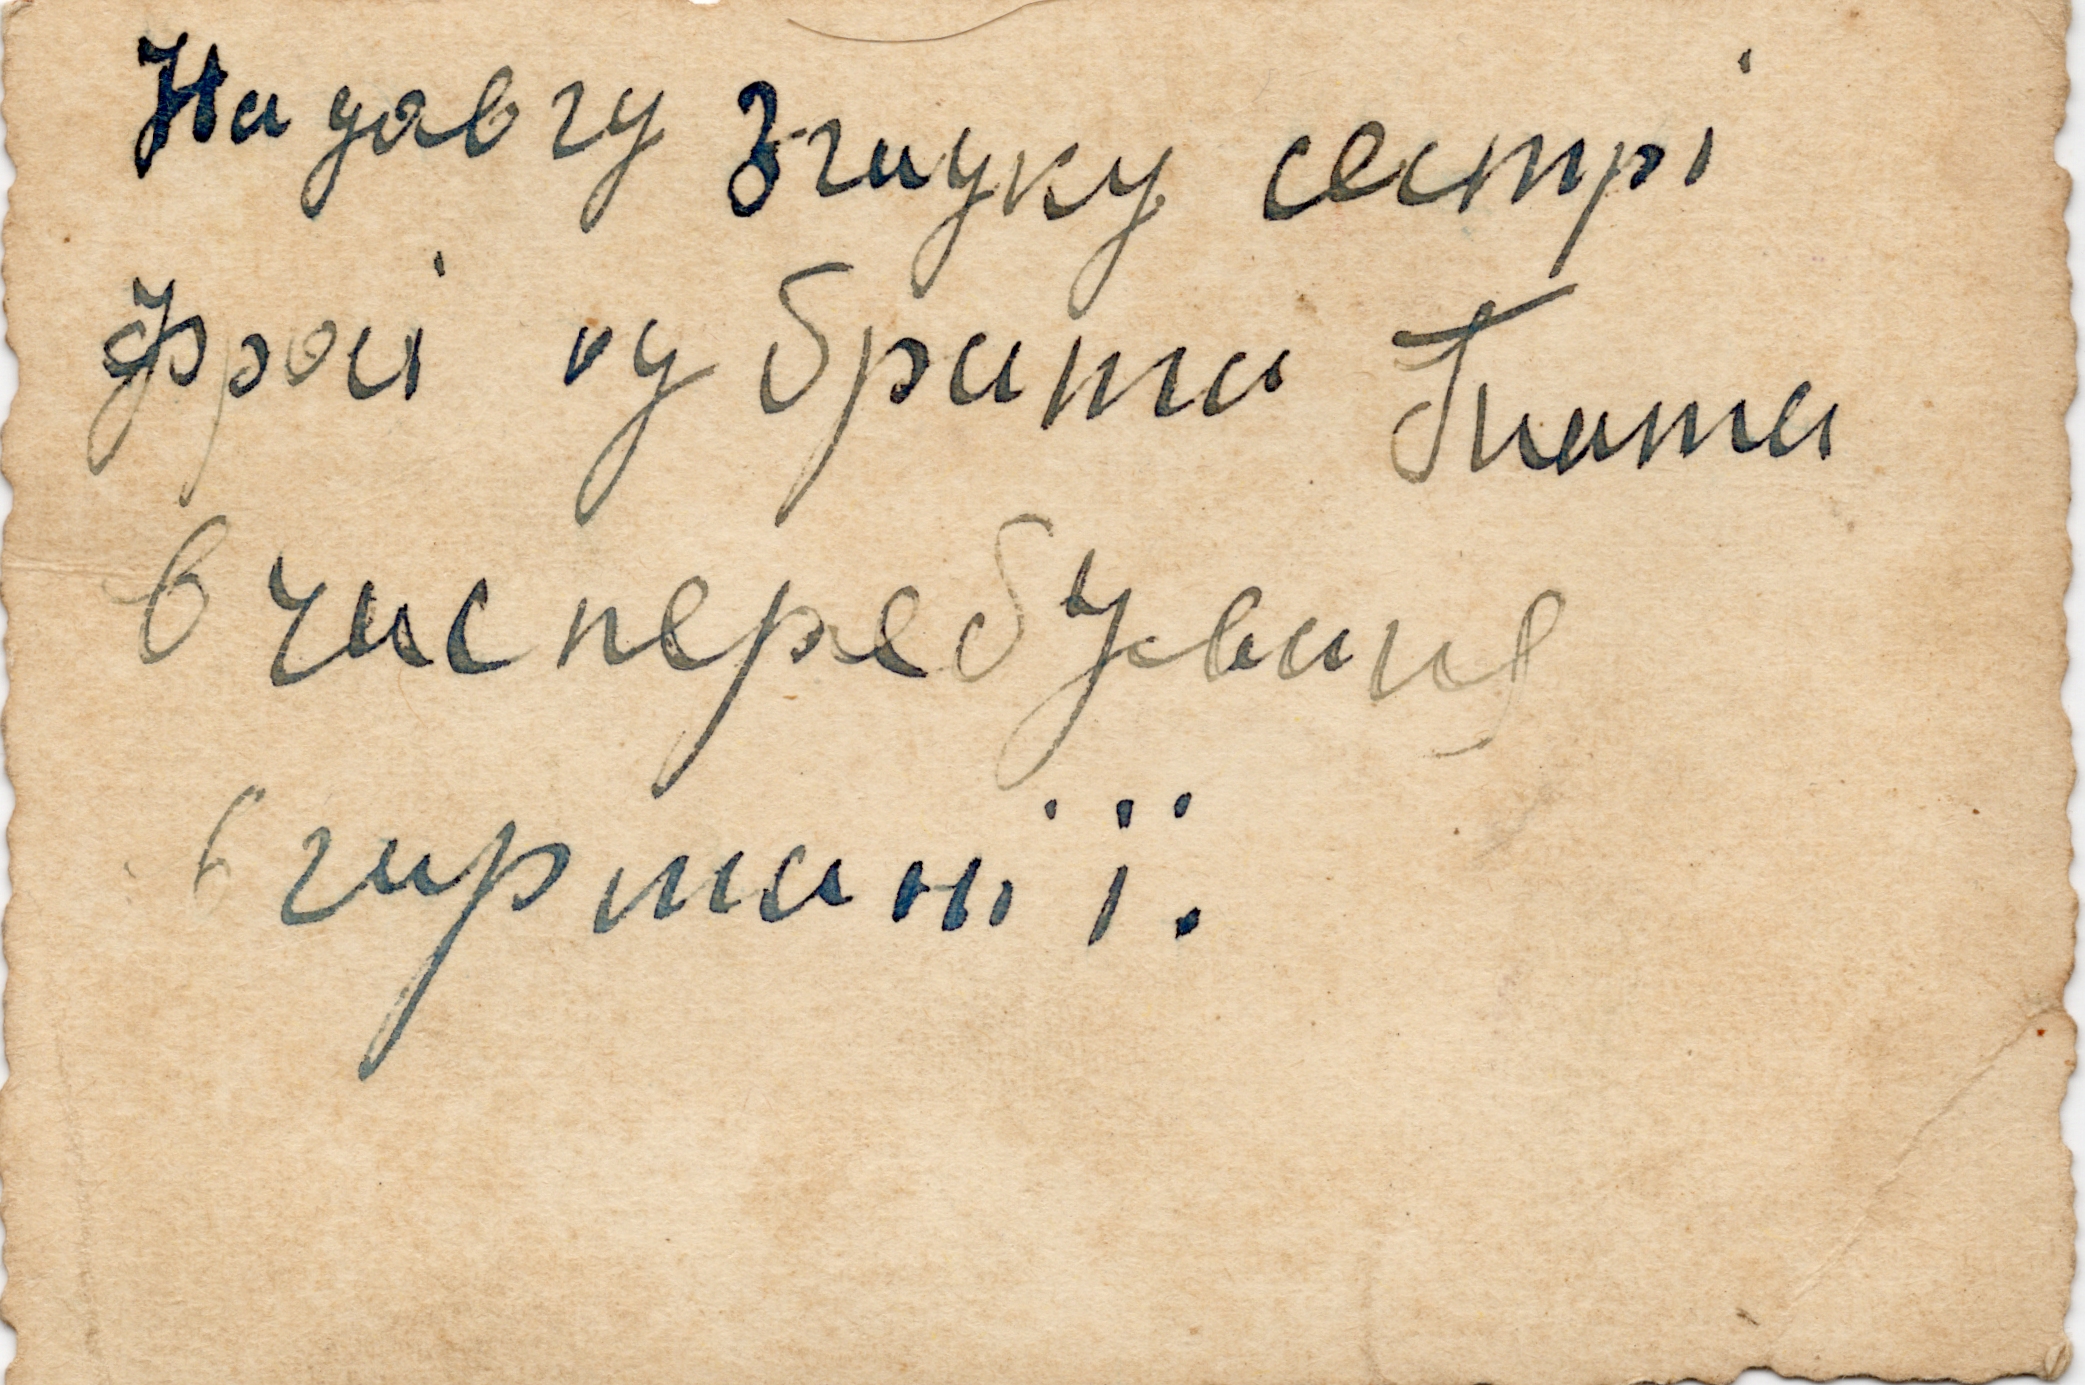 На довгу Згадку сестрі
Фросі од брата Гната
в час перебуваня
в германії.